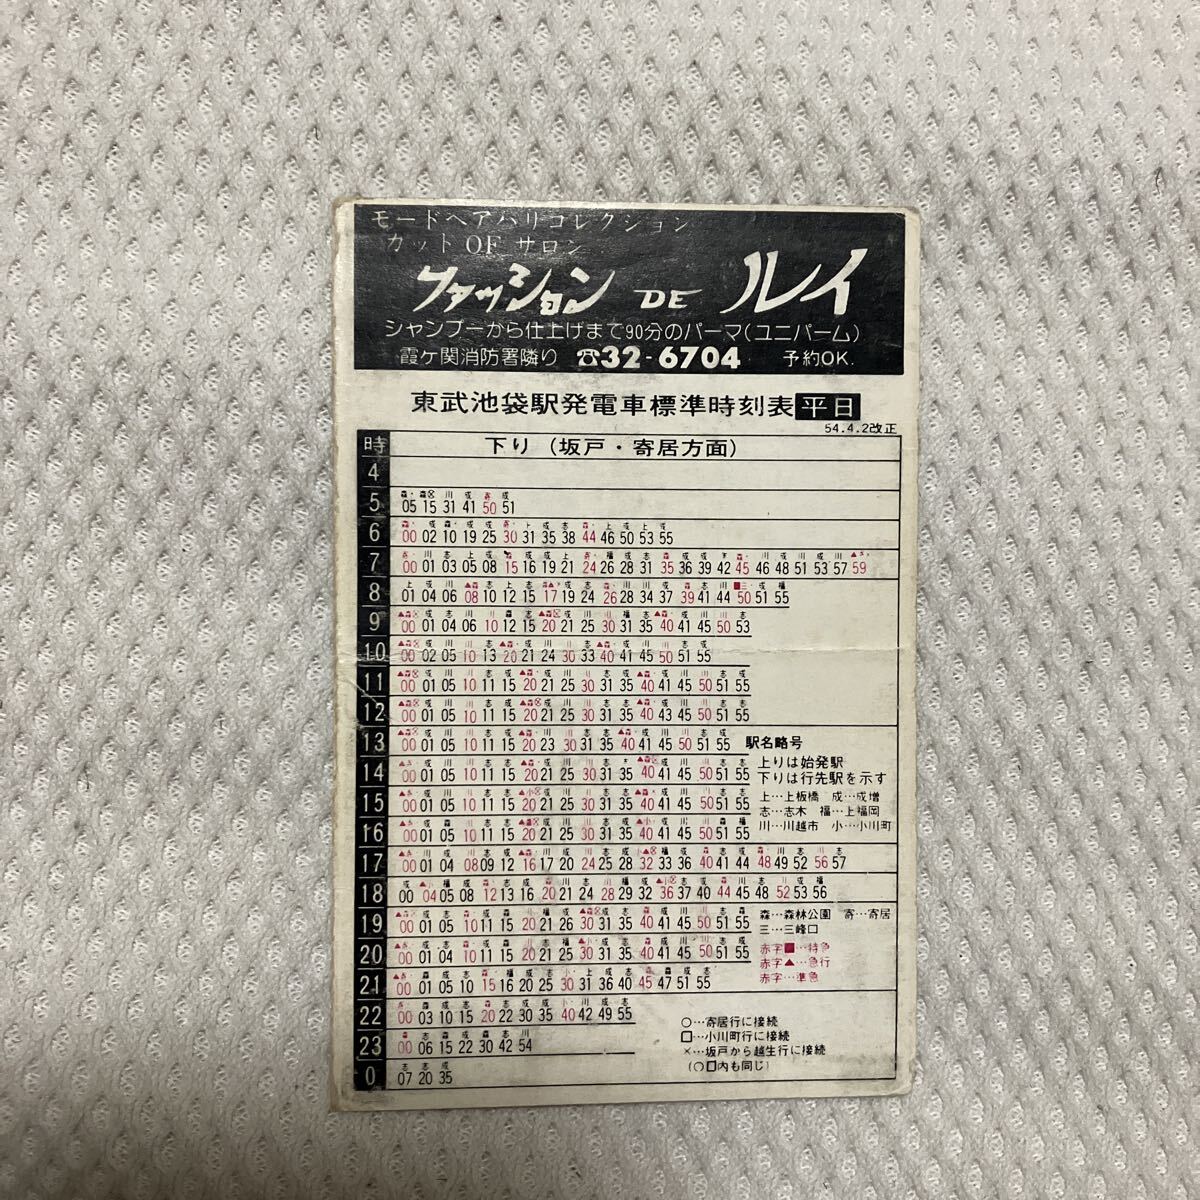 モードヘアパリコレクション
カットOFサロン
ファッション DE ルイ
シャンプーから仕上げまで90分のパーマ(ユニパーム)
霞ヶ関消防署隣り ☎32-6704 予約OK.
東武池袋駅発電車標準時刻表 平日
54.4.2改正
時 下り (坂戸・寄居方面)
4
5 05 15 31 41 50 51
6 00 02 10 19 25 30 31 35 38 44 46 50 53 55
7 00 01 03 05 08 15 16 19 21 24 26 28 31 35 36 39 42 45 46 48 51 53 57 59
8 01 04 06 08 10 12 15 17 19 24 26 28 34 37 39 41 44 50 51 55
9 00 01 04 06 10 12 15 20 21 25 30 31 35 40 41 45 50 53
10 00 02 05 10 13 20 21 24 30 33 40 41 45 50 51 55
11 00 01 05 10 11 15 20 21 25 30 31 35 40 41 45 50 51 55
12 00 01 05 10 11 15 20 21 25 30 31 35 40 43 45 50 51 55
13 00 01 05 10 11 15 20 23 30 31 35 40 41 45 50 51 55
14 00 01 05 10 11 15 20 21 25 30 31 35 40 41 45 50 51 55
15 00 01 05 10 11 15 20 21 25 30 31 35 40 41 45 50 51 55
16 00 01 05 10 11 15 20 21 25 30 31 35 40 41 45 50 51 55
17 00 01 04 08 09 12 16 17 20 24 25 28 32 33 36 40 41 44 48 49 52 56 57
18 00 04 05 08 12 13 16 20 21 24 28 29 32 36 37 40 44 45 48 52 53 56
19 00 01 05 10 11 15 20 21 26 30 31 35 40 41 45 50 51 55
20 00 01 04 10 11 15 20 21 25 30 31 35 40 41 45 50 51 55
21 00 01 05 10 15 16 20 25 30 31 36 40 45 47 51 55
22 00 03 10 15 20 22 30 35 40 42 49 55
23 00 06 15 22 30 42 54
0 07 20 35
駅名略号
上りは始発駅
下りは行先駅を示す
上…上板橋 成…成増
志…志木 福…上福岡
川…川越市 小…小川町
森…森林公園 寄…寄居
三…三峰口
赤字■…特急
赤字▲…急行
赤字…準急
○…寄居行に接続
□…小川町行に接続
×…坂戸から越生行に接続
(○□内も同じ)